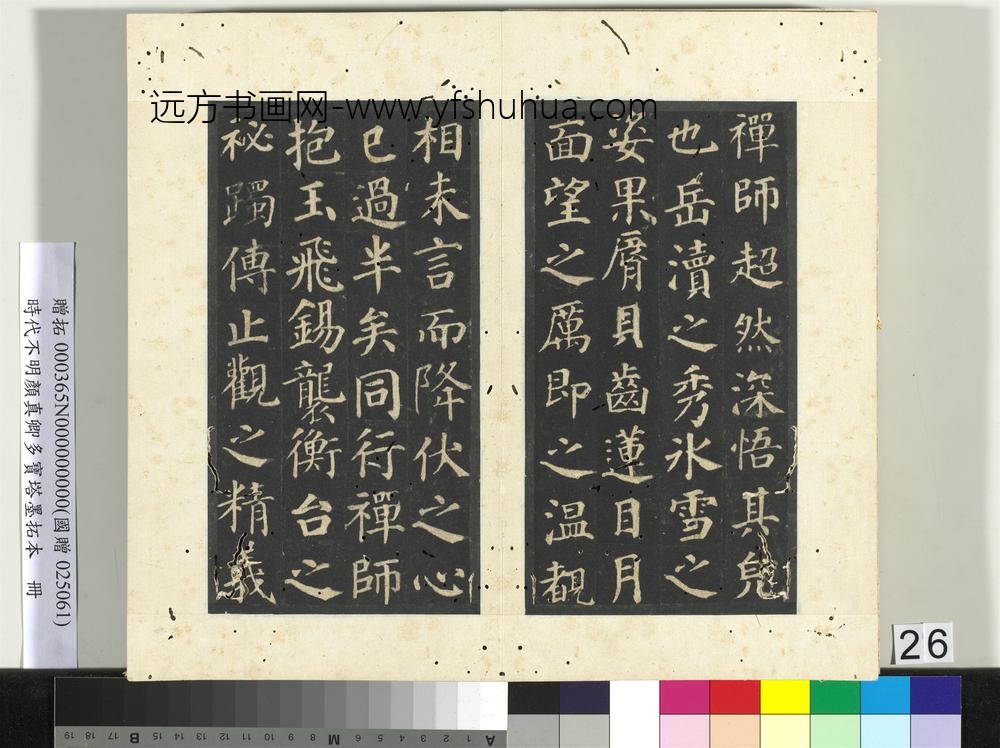 远方书画网-www.yfshuhua.com
禪師超然深悟其皃
也岳瀆之秀氷雪之
姿果脣貝齒蓮目月
面望之厲即之温覩
相未言而降伏之心
已過半矣同行禪師
抱玉飛錫襲衡台之
祕躅傳止觀之精義
贈拓 000365N000000000(國贈 025061)
時代不明顏真卿多寶塔墨拓本 冊
26
19 18 17 16 15 14 13 12 11 10 9 8 7 6 5 4 3 2 1
B M A